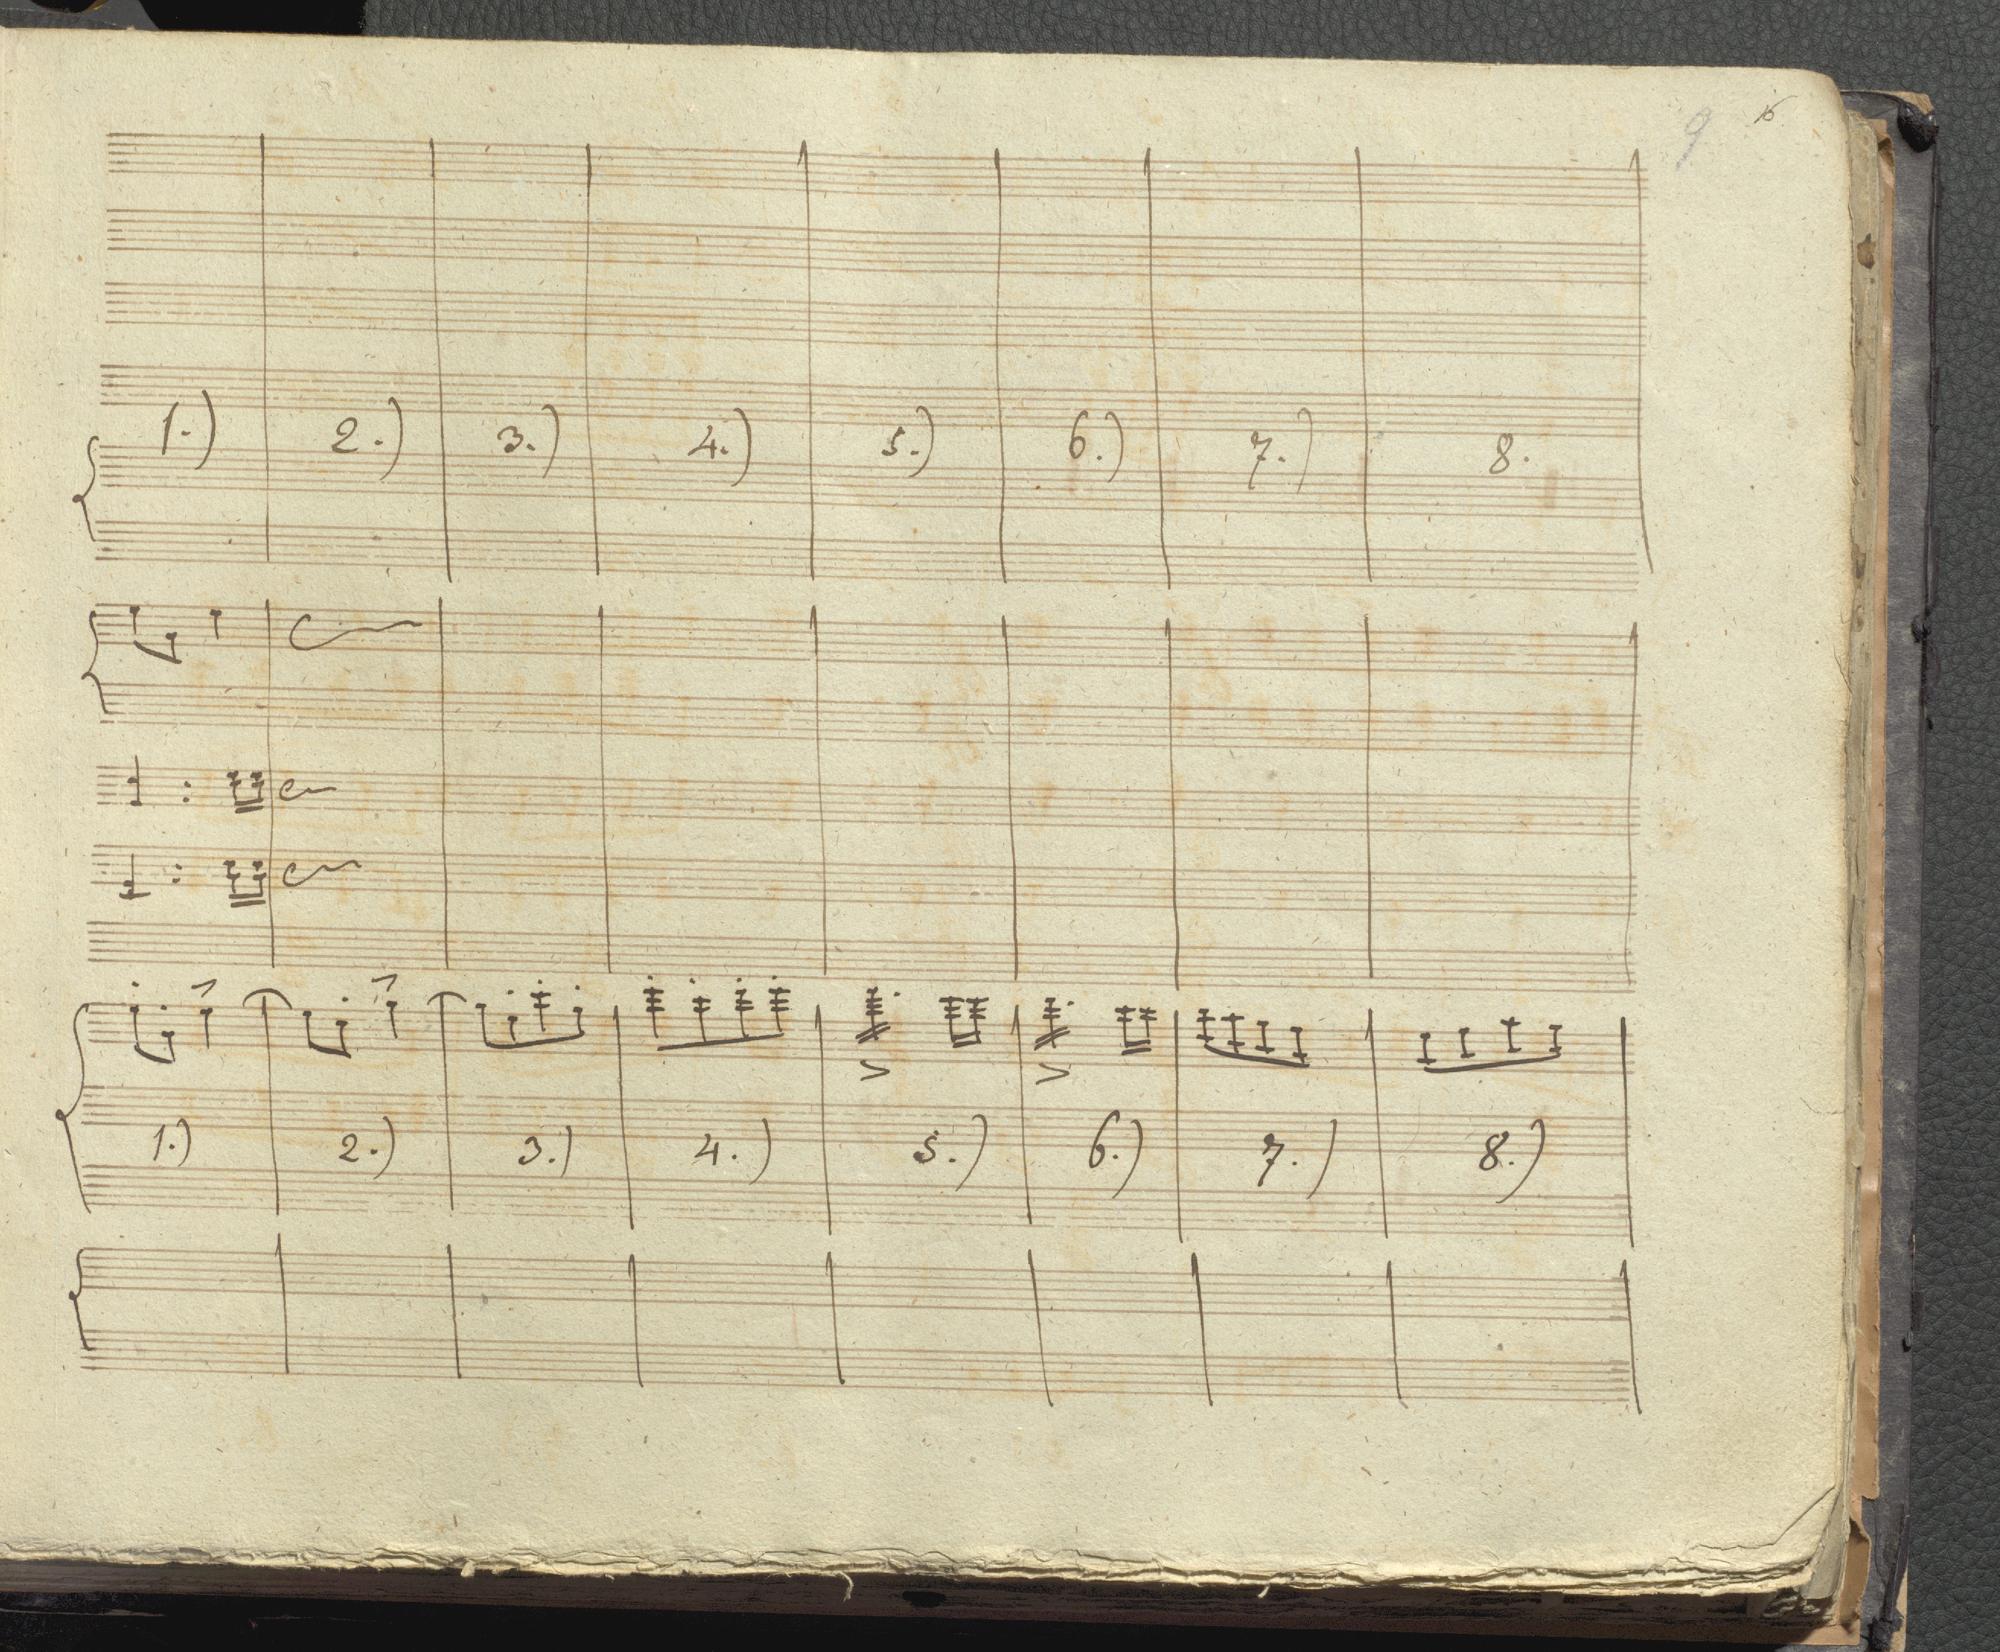 9 16
1.) 2.) 3.) 4.) 5.) 6.) 7.) 8.
1.) 2.) 3.) 4.) 5.) 6.) 7.) 8.)